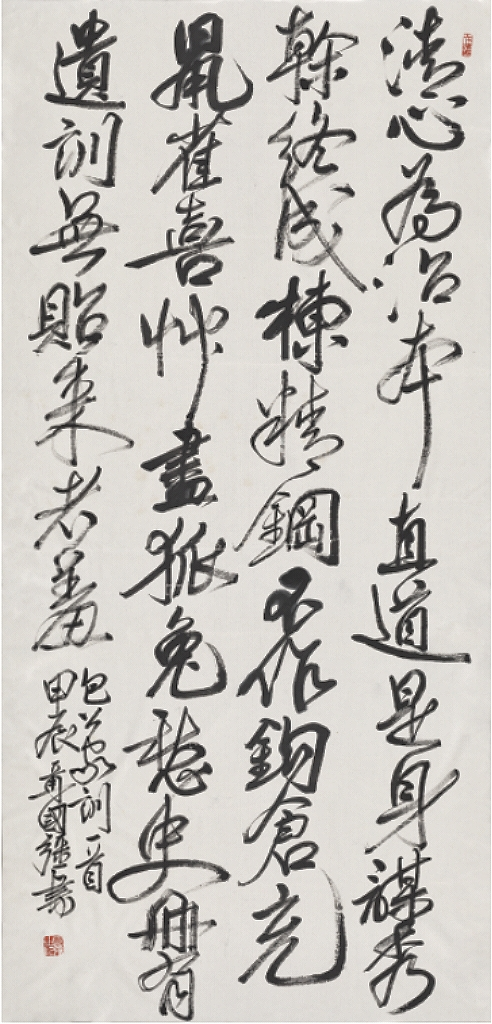 清心為治本直道是身謀秀
榦終成棟精鋼不作鈎倉充
鼠雀喜艸盡狐兔愁史冊有
遺訓無貽来者羞
包公家訓一首
甲辰國強書